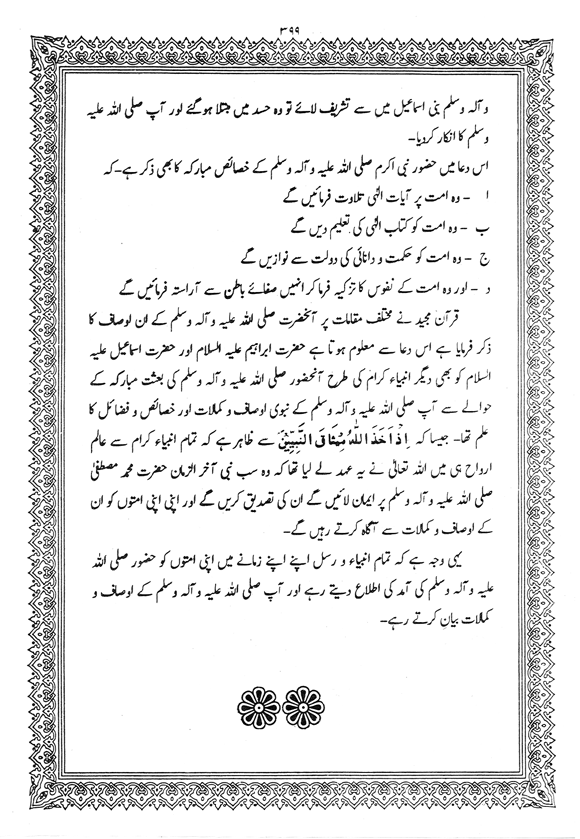 ۳۹۹
و آلہ وسلم بنی اسماعیل میں سے تشریف لائے تو وہ حسد میں مبتلا ہو گئے اور آپ صلی اللہ علیہ
وسلم کا انکار کر دیا۔
اس دعا میں حضور نبی اکرم صلی اللہ علیہ و آلہ وسلم کے خصائص مبارکہ کا بھی ذکر ہے۔ کہ
ا ۔ وہ امت پر آیات الٰہی تلاوت فرمائیں گے
ب ۔ وہ امت کو کتاب الٰہی کی تعلیم دیں گے
ج ۔ وہ امت کو حکمت و دانائی کی دولت سے نوازیں گے
د ۔ اور وہ امت کے نفوس کا تزکیہ فرما کر انہیں صفائے باطن سے آراستہ فرمائیں گے
قرآن مجید نے مختلف مقامات پر آنحضرت صلی اللہ علیہ و آلہ وسلم کے ان اوصاف کا
ذکر فرمایا ہے اس دعا سے معلوم ہوتا ہے حضرت ابراہیم علیہ السلام اور حضرت اسماعیل علیہ
السلام کو بھی دیگر انبیاء کرام کی طرح آنحضور صلی اللہ علیہ و آلہ وسلم کی بعثت مبارکہ کے
حوالے سے آپ صلی اللہ علیہ و آلہ وسلم کے نبوی اوصاف و کمالات اور خصائص و فضائل کا
علم تھا۔ جیسا کہ اِذْ اَخَذَ اللّٰهُ مِيْثَاقَ النَّبِيّٖنَ سے ظاہر ہے کہ تمام انبیاء کرام سے عالم
ارواح ہی میں اللہ تعالیٰ نے یہ عہد لے لیا تھا کہ وہ سب نبی آخر الزمان حضرت محمد مصطفیٰ
صلی اللہ علیہ و آلہ وسلم پر ایمان لائیں گے ان کی تصدیق کریں گے اور اپنی اپنی امتوں کو ان
کے اوصاف و کمالات سے آگاہ کرتے رہیں گے۔
یہی وجہ ہے کہ تمام انبیاء و رسل اپنے اپنے زمانے میں اپنی امتوں کو حضور صلی اللہ
علیہ و آلہ وسلم کی آمد کی اطلاع دیتے رہے اور آپ صلی اللہ علیہ و آلہ وسلم کے اوصاف و
کمالات بیان کرتے رہے۔